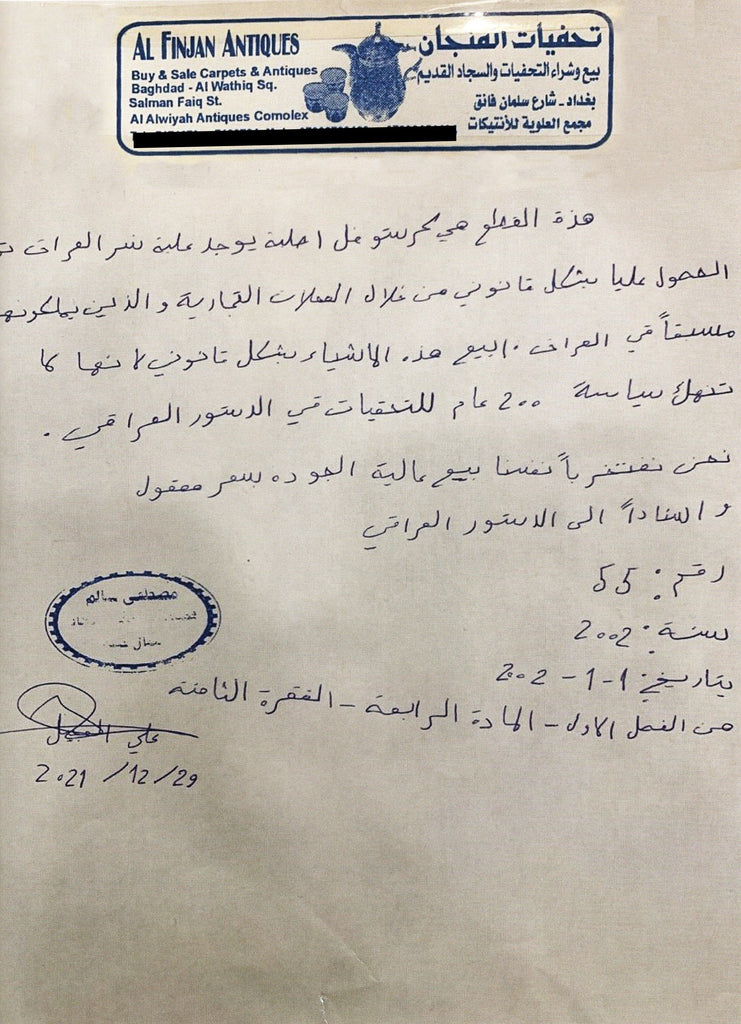 AL FINJAN ANTIQUES
Buy & Sale Carpets & Antiques
Baghdad - Al Wathiq Sq.
Salman Faiq St.
Al Alwiyah Antiques Comolex
تحفيات الفنجان
بيع وشراء التحفيات والسجاد القديم
بغداد - شارع سلمان فائق
مجمع العلوية للأنتيكات
هذة القطع هي اصلية يوجد علية العراق
الحصول عليا بشكل قانوني من خلال المحلات التجارية والذين يملكونها
مسبقاً في العراق . البيع هذه الاشياء بشكل قانوني لانها لا
تنهك سياسة 200 عام للتحفيات في الدستور العراقي .
نحن نفتخر بأنفسنا بيع عالية الجوده بسعر معقول
و استناداً الى الدستور العراقي
رقم : 55
سنة : 2002
بتاريخ : 1-1-2002
من الفصل الاول - المادة الرابعة - الفقرة الثامنة
مصطفى سالم
علي
2021/12/29